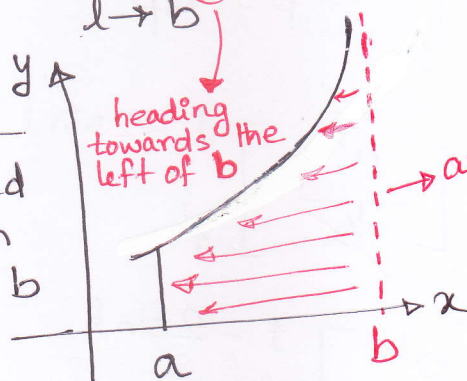 l → b
y
heading
towards the
left of b
d
b
→ a
x
a
b